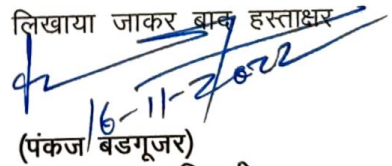 लिखाया जाकर बाद हस्ताक्षर
16-11-2022
(पंकज बडगूजर)